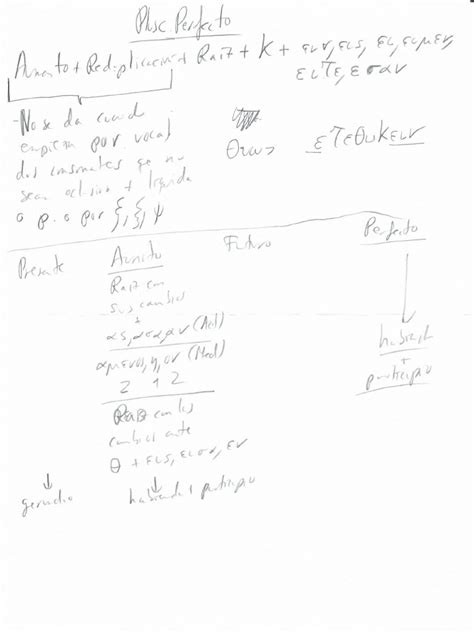 Plusc Perfecto
Aumento + Reduplicación + Raiz + κ + ειν, εις, ει, ειμεν,
ειτε, εσαν
- No se da cuando
empieza por vocal
dos consonantes que no
sean oclusiva + líquida
o por ζ, ξ, ψ
θυω
ετεθυκειν
Presente Aoristo Futuro Perfecto
Raiz con
sus cambios
+
ας, ασα, αν (Act)
αμενος, η, ον (Med)
2 1 2
Raiz con los
cambios ante
θ + εις, εισα, εν
gerundio
habiendo + participio
habiendo
+
participio